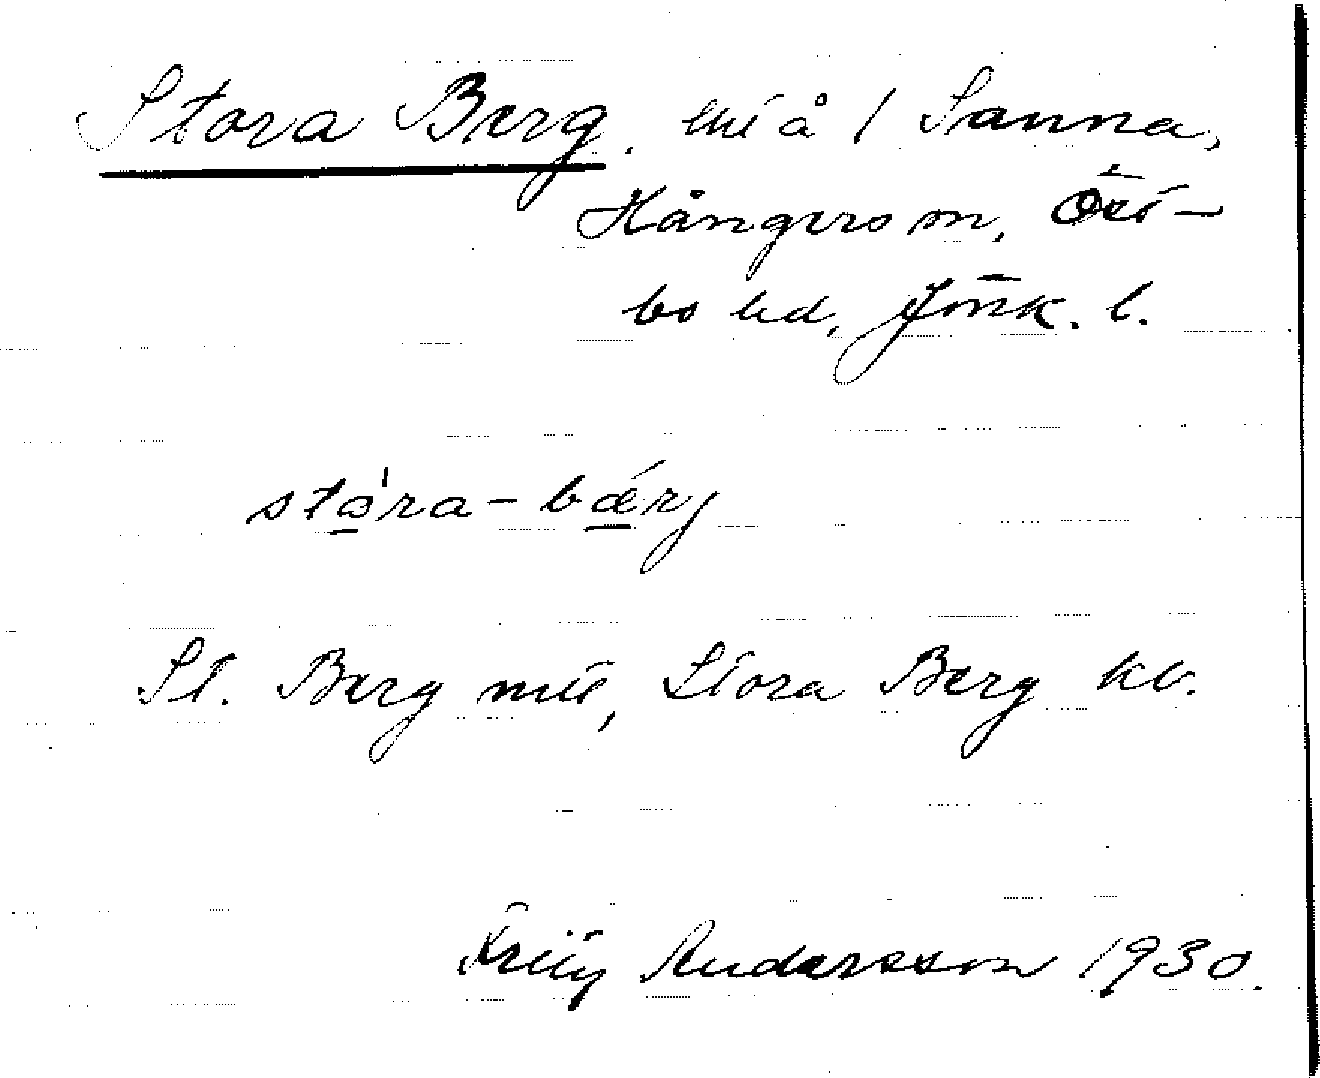 Stora Berg. lht å / Sanna,
Hångers sn, Öst-
bo hd, Jönk. l.
stǻra-bǽrj
St. Berg mtl, Stora Berg kv.
Andersson 1930.